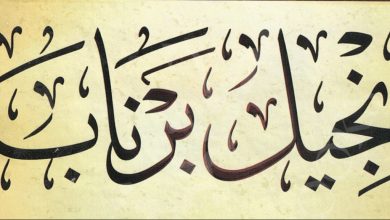 نجيل بَرناب